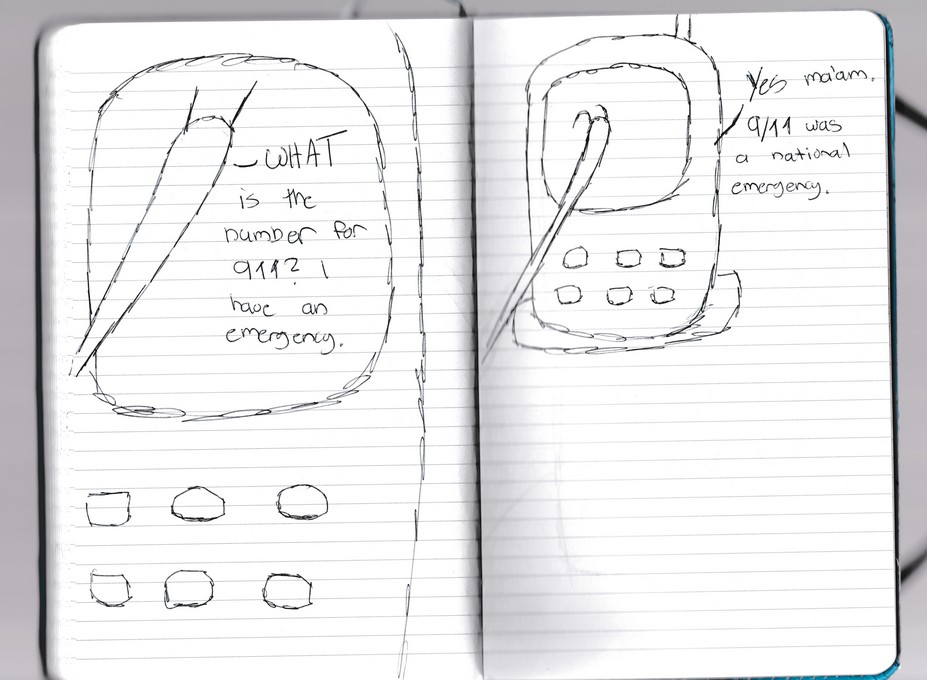 – WHAT
is the
number for
911? I
have an
emergency.
Yes ma'am.
9/11 was
a national
emergency.